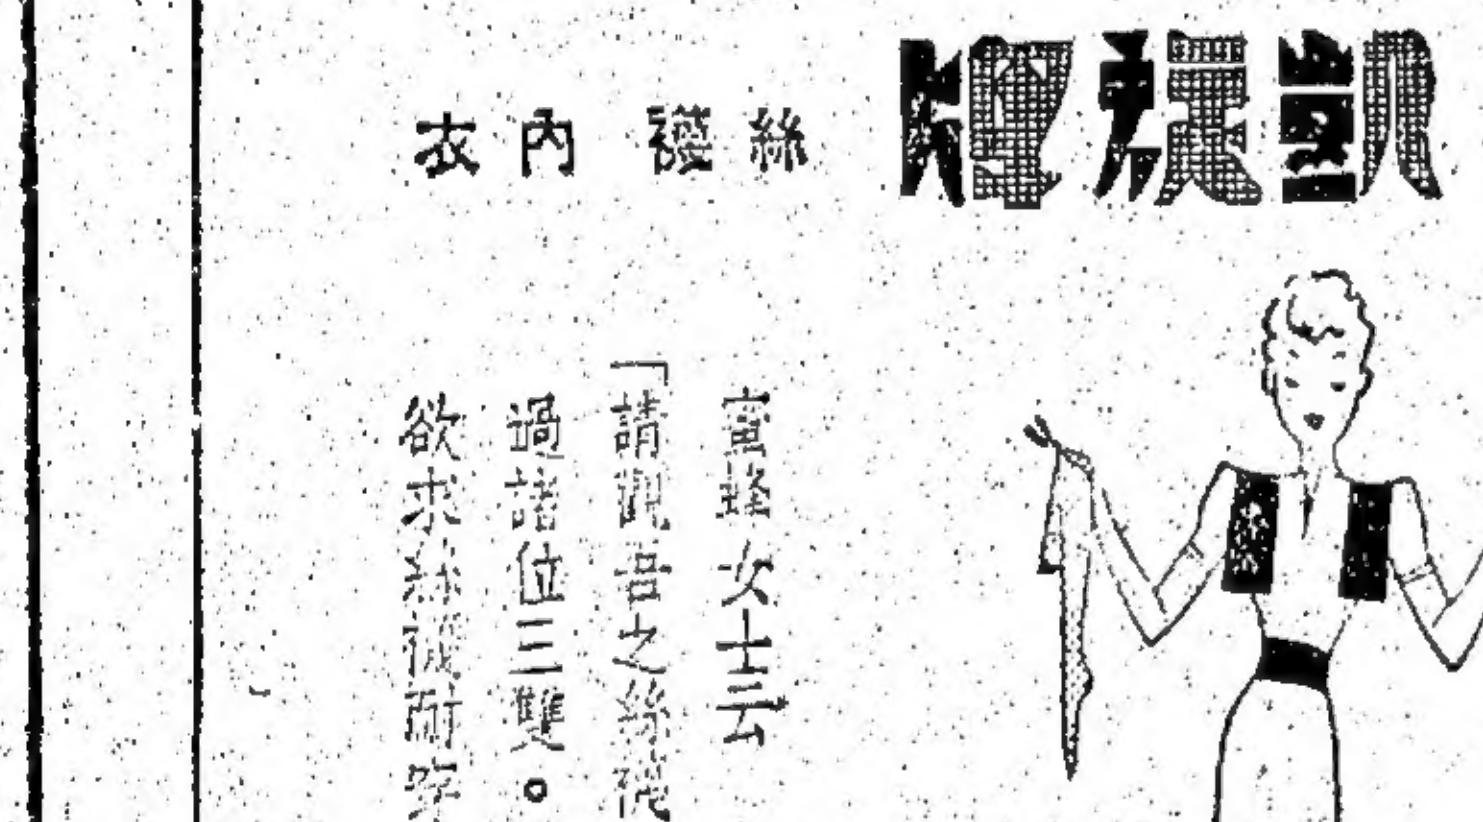 凱旋牌
絲襪 內衣
女士云
「請觀吾之絲襪
過諸位三雙。
欲求絲襪耐穿